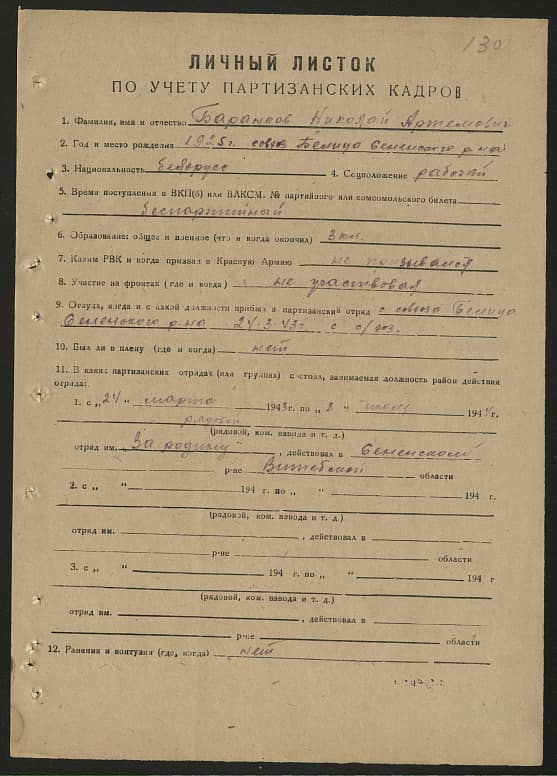 130
ЛИЧНЫЙ ЛИСТОК
ПО УЧЕТУ ПАРТИЗАНСКИХ КАДРОВ
1. Фамилия, имя и отчество Баранков Николай Артемович
2. Год и место рождения 1925г. совхоз Белица Сенненского р-на
3. Национальность белорусс 4. Соцположение рабочий
5. Время поступления в ВКП(б) или ВЛКСМ. № партийного или комсомольского билета
беспартийный
6. Образование: общее и военное (что и когда окончил) 3 кл.
7. Каким РВК и когда призван в Красную Армию не призывался
8. Участие на фронтах (где и когда) не участвовал
9. Откуда, когда и с какой должности прибыл в партизанский отряд с совхоза Белица
Сенненского р-на 24.3.43г. с с/хоз.
10. Был ли в плену (где и когда) нет
11. В каких партизанских отрядах (или группах) состоял, занимаемая должность район действия
отряда:
1. с „24 " марта 1943г. по „8 " 194 г.
рядовой
(рядовой, ком. взвода и т. д.)
отряд им. За родину , действовал в Сенненском
р-не Витебской области
2. с „ " 194 г. по „ " 194 г.
(рядовой, ком. взвода и т. д.)
отряд им. , действовал в
р-не области
3. с „ " 194 г. по „ " 194 г
(рядовой, ком. взвода и т. д.)
отряд им. , действовал в
р-не области
12. Ранения и контузии (где, когда) нет